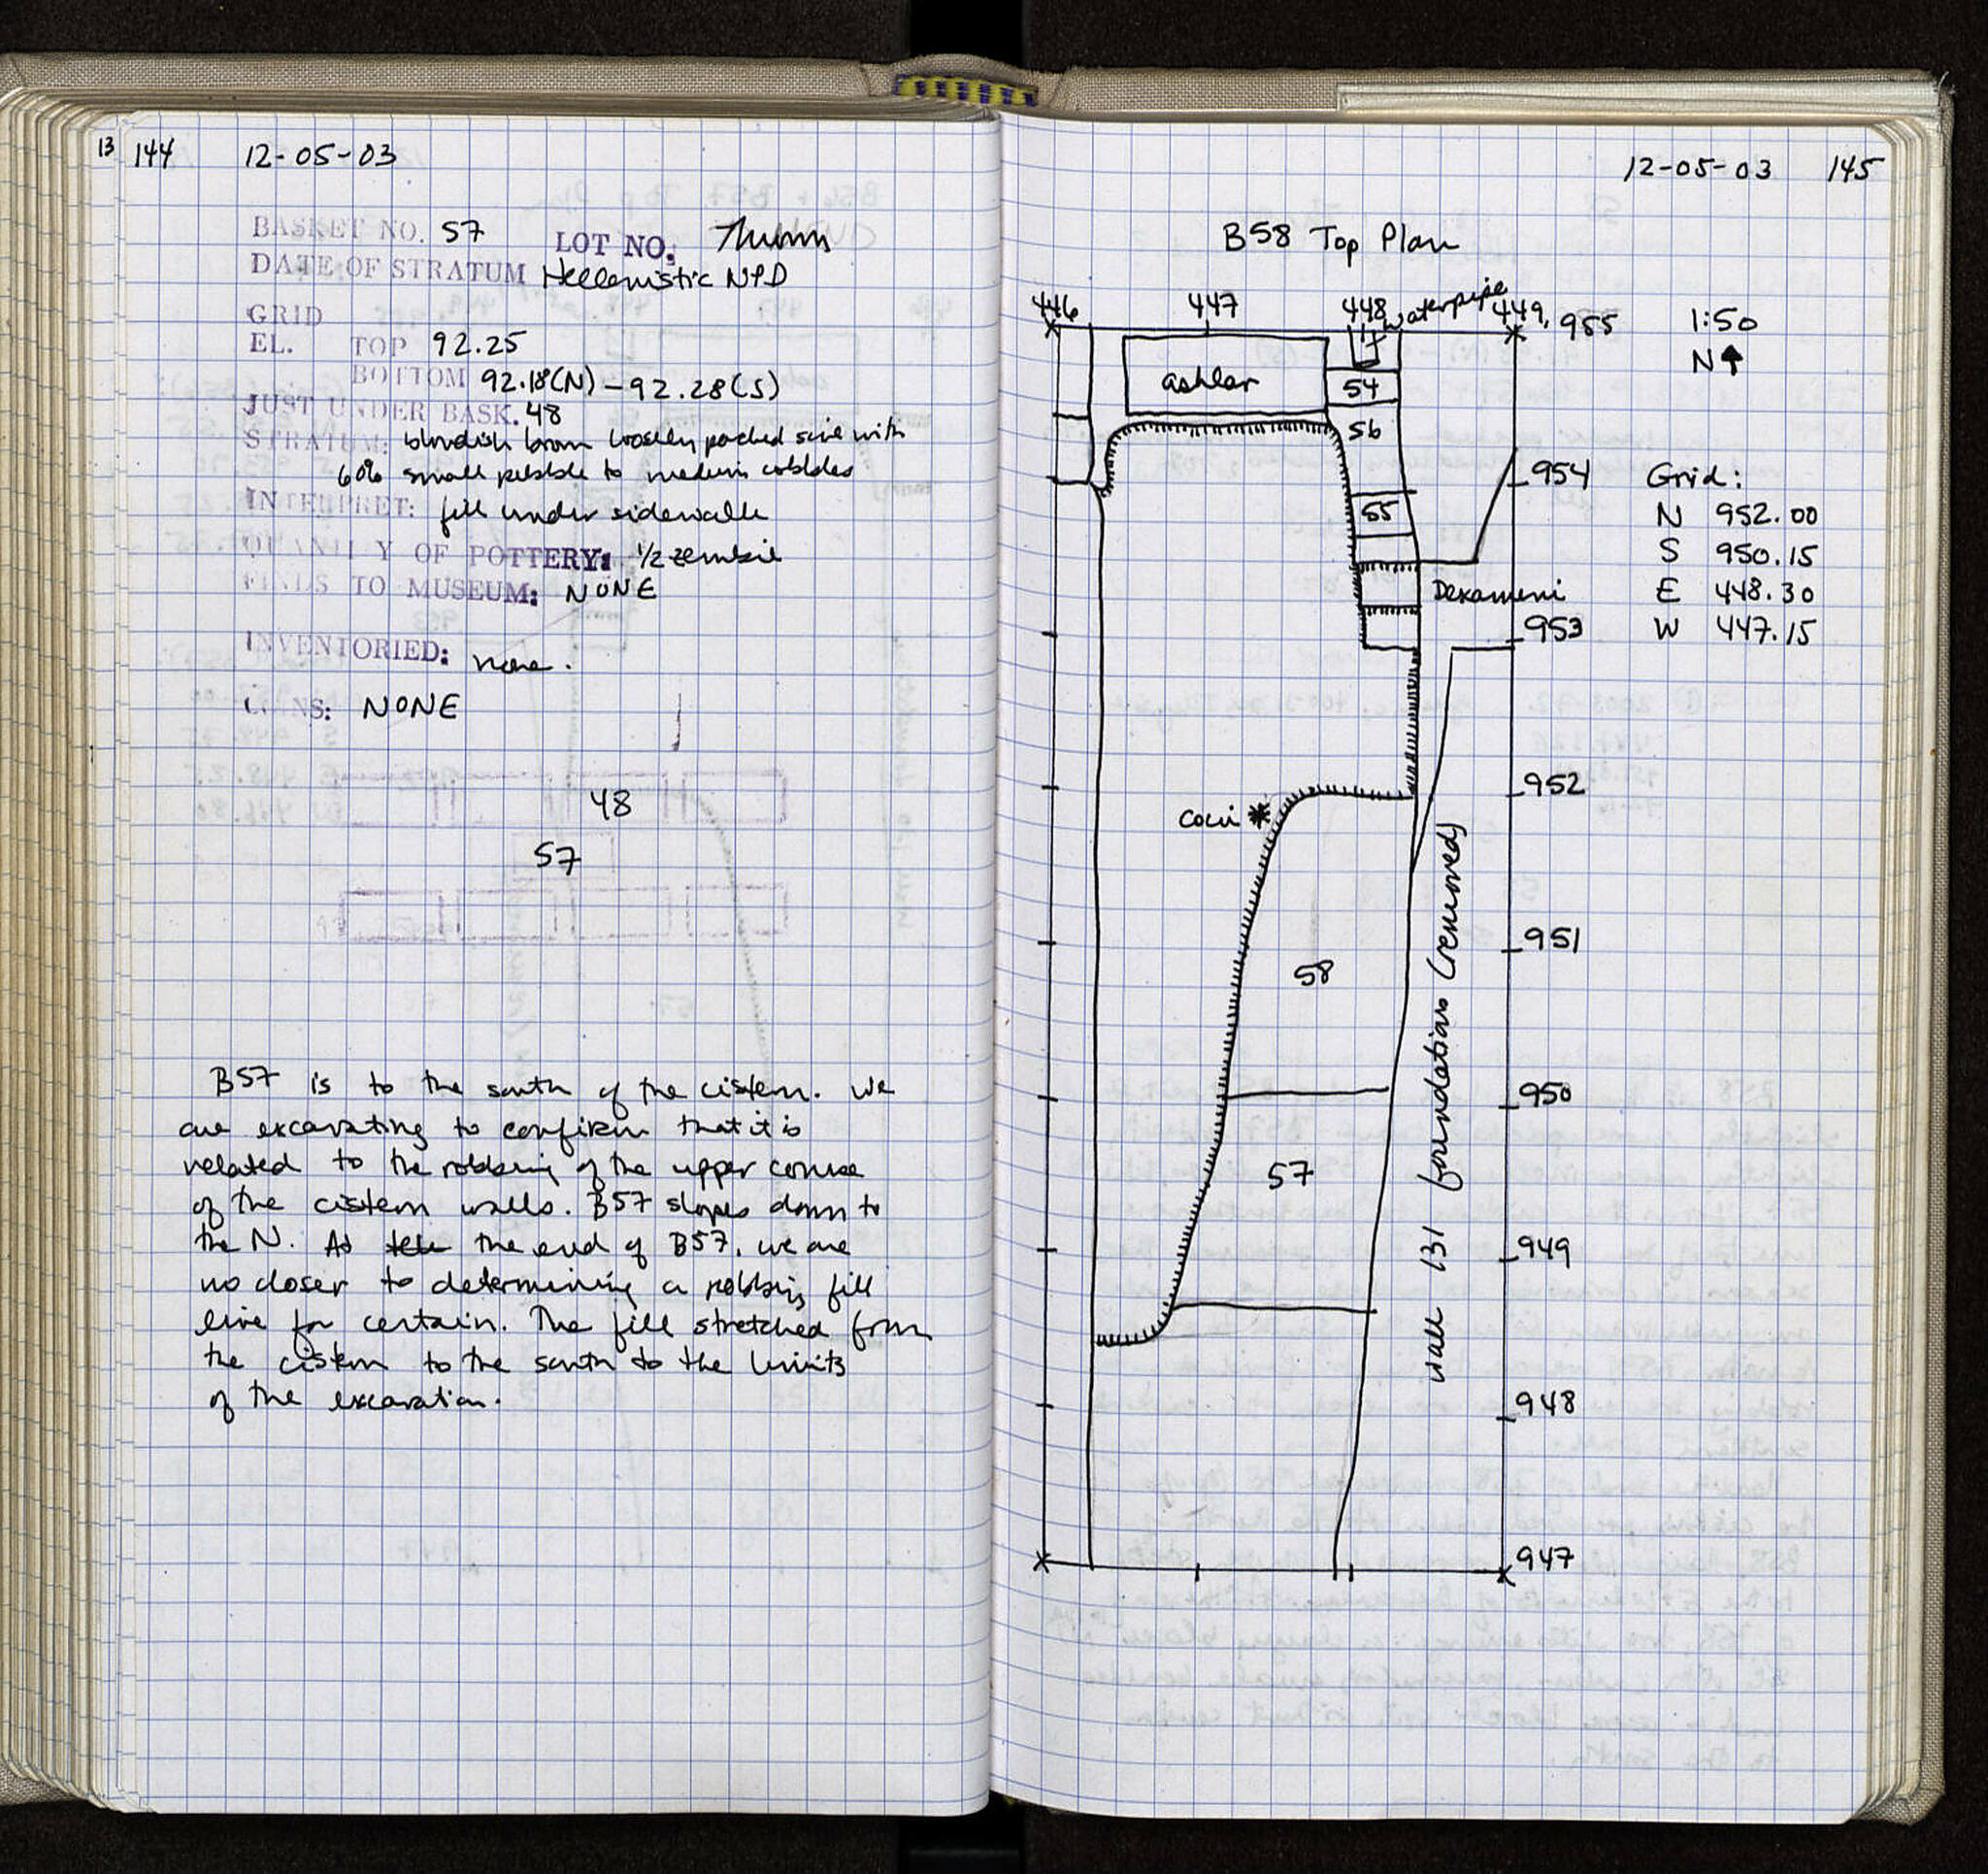 13 144 12-05-03
BASKET NO. 57 LOT NO:
DATE OF STRATUM Hellenistic NPD
GRID
EL. TOP 92.25
BOTTOM 92.18(N) – 92.28(S)
JUST UNDER BASK. 48
STRATUM: blondish brown loosely packed soil with
60% small pebble to medium cobbles
INTERPRET: fill under sidewalk
QUANTITY OF POTTERY: 1/2 zembil
FINDS TO MUSEUM: NONE
INVENTORIED: none.
COINS: NONE
48
57
B57 is to the south of the cistern. We
are excavating to confirm that it is
related to the robbing of the upper course
of the cistern walls. B57 slopes down to
the N. At the end of B57, we are
no closer to determining a robbing fill
line for certain. The fill stretched from
the cistern to the south to the limits
of the excavation.
12-05-03 145
B58 Top Plan
446 447 448 waterpipe 449, 955
1:50
N
ashlar
54
56
954
55
Grid:
N 952.00
S 950.15
E 448.30
W 447.15
Dexameni
953
952
coin
951
58
950
57
949
wall 131 foundations (removed)
948
947